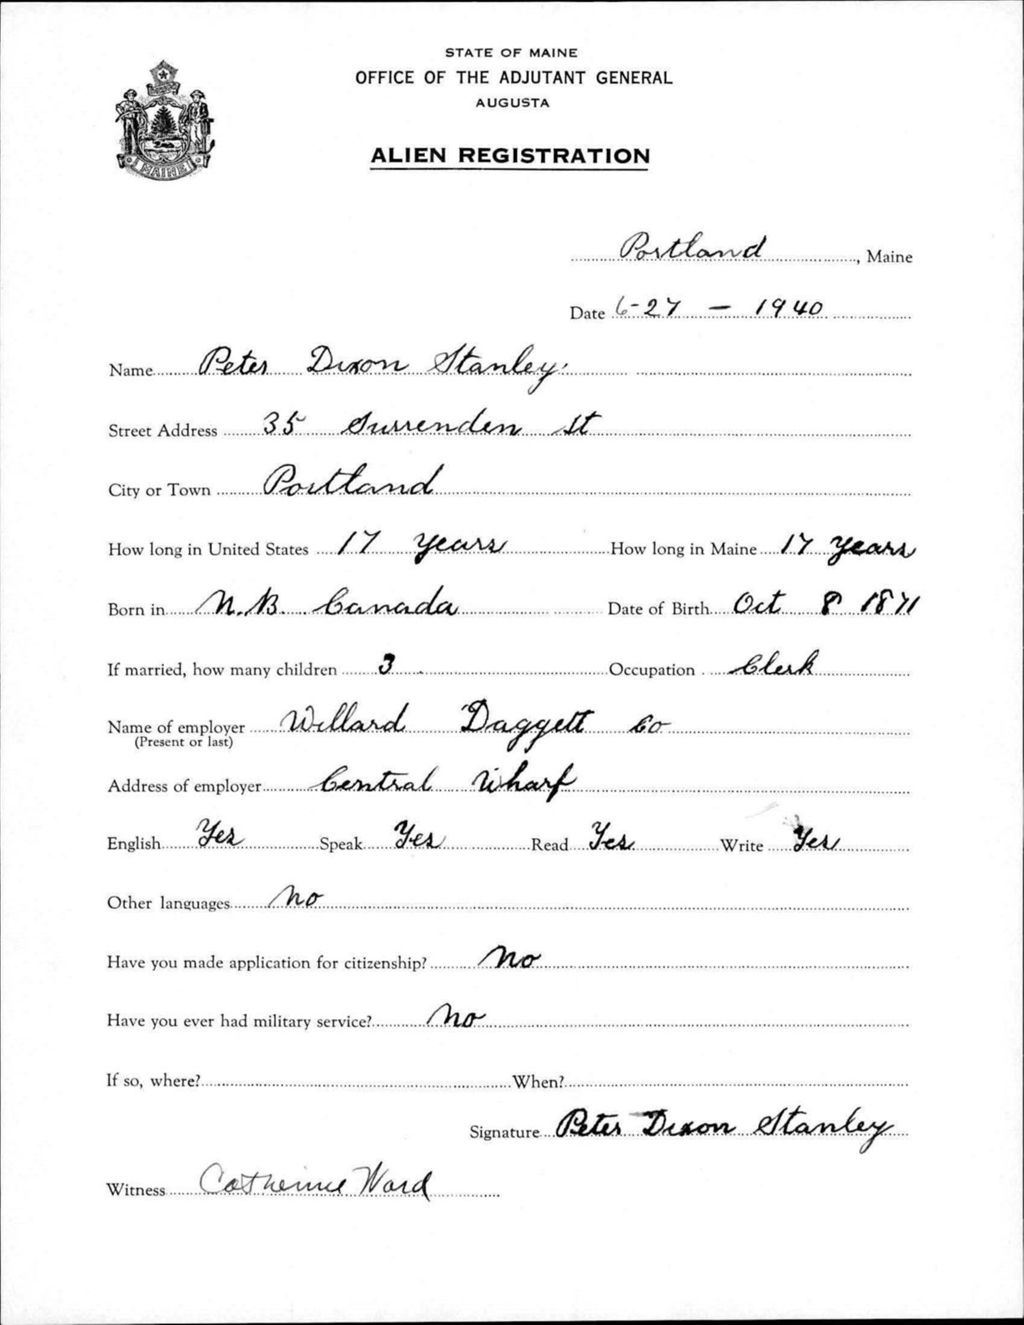 STATE OF MAINE
OFFICE OF THE ADJUTANT GENERAL
AUGUSTA
ALIEN REGISTRATION
MAINE
Portland, Maine
Date 6-27 - 1940
Name Peter Dixon Stanley
Street Address 35 Surrenden St
City or Town Portland
How long in United States 17 years How long in Maine 17 years
Born in N.B. Canada Date of Birth Oct 8 1871
If married, how many children 3 Occupation Clerk
Name of employer Willard Daggett Co
(Present or last)
Address of employer Central Wharf
English Yes Speak Yes Read Yes Write Yes
Other languages No
Have you made application for citizenship? No
Have you ever had military service? No
If so, where? When?
Signature Peter Dixon Stanley
Witness Catherine Ward